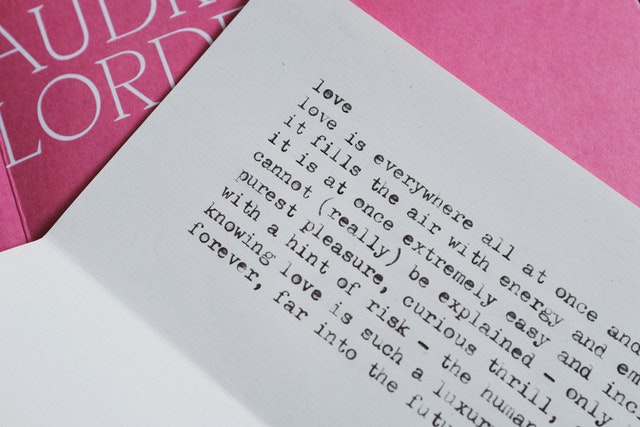 AUDRE
LORDE
love
love is everywhere all at once and
it fills the air with energy and
it is at once extremely easy and
cannot (really) be explained - only
purest pleasure, curious thrill,
with a hint of risk - the human
knowing love is such a
forever, far into the